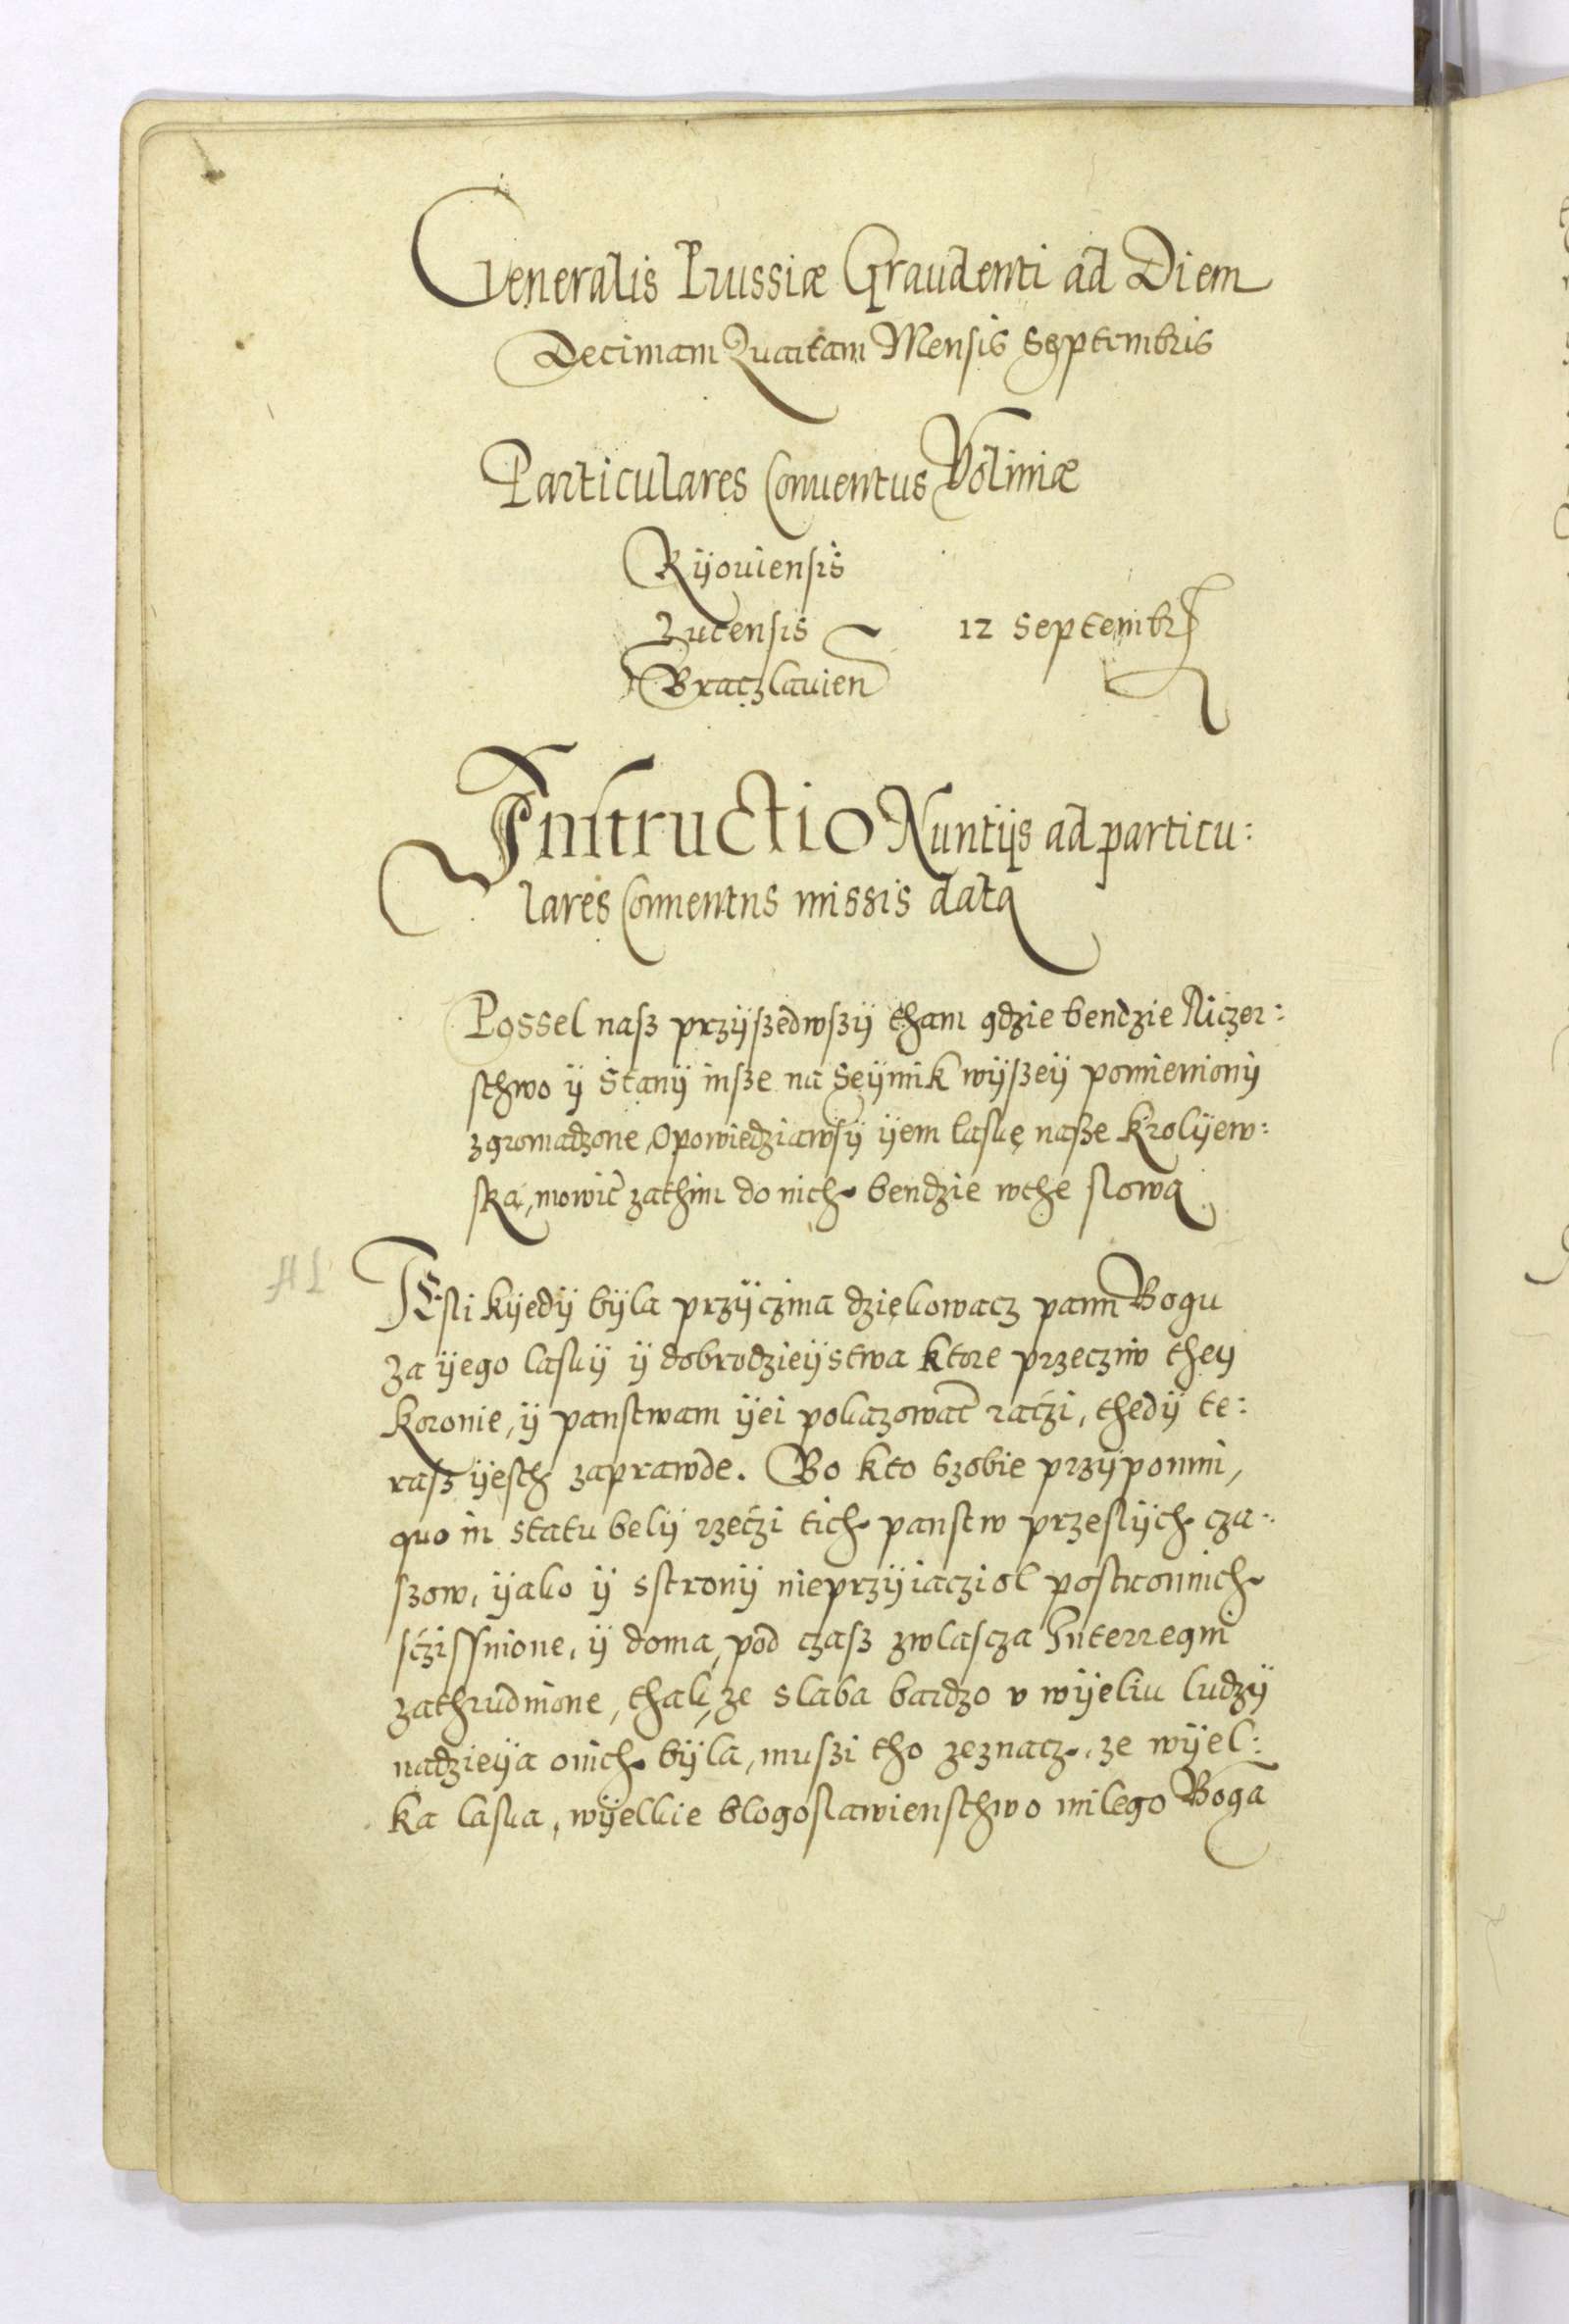 Generalis Prussiæ Graudenti ad Diem
Decimam Quartam Mensis Septembris
Particulares Conuentus Voliniæ
Kÿouiensis
Lucensis 12 Septembr
Braczlauien
Instructio Nuntijs ad particu:
lares Conuentus missis data
Possel nasz przÿszedwszÿ tham gdzie bendzie Riczer:
sthwo ÿ Stanÿ insze na Seÿmik wÿszeÿ pomienionÿ
zgromadzone, Opowiedziawsÿ ÿem laskę nasze Krolÿew:
ska, mowić zathim do nich bendzie wthe slowa
JEsli kÿedÿ bÿla przÿczina dziękowacz panu Bogu
za ÿego laskÿ ÿ dobrodzieÿstwa ktore przecziw theÿ
Koronie, ÿ panstwam ÿei pokazować raczi, thedÿ te:
rasz ÿesth zaprawde. Bo kto szobie przÿpomni,
quo in statu belÿ rzeczi tich panstw przeslÿch cza:
szow, ÿako ÿ sstronÿ nieprzÿiacziol postronnich
sczissnione, ÿ doma, pod czasz zwlascza Interregni
zathrudnione, thak, ze slaba bardzo v wÿelu ludzÿ
nadzieÿa onich bÿla, muszi tho zeznacz, ze wÿel:
ka laska, wÿelkie blogoslawiensthwo milego Boga